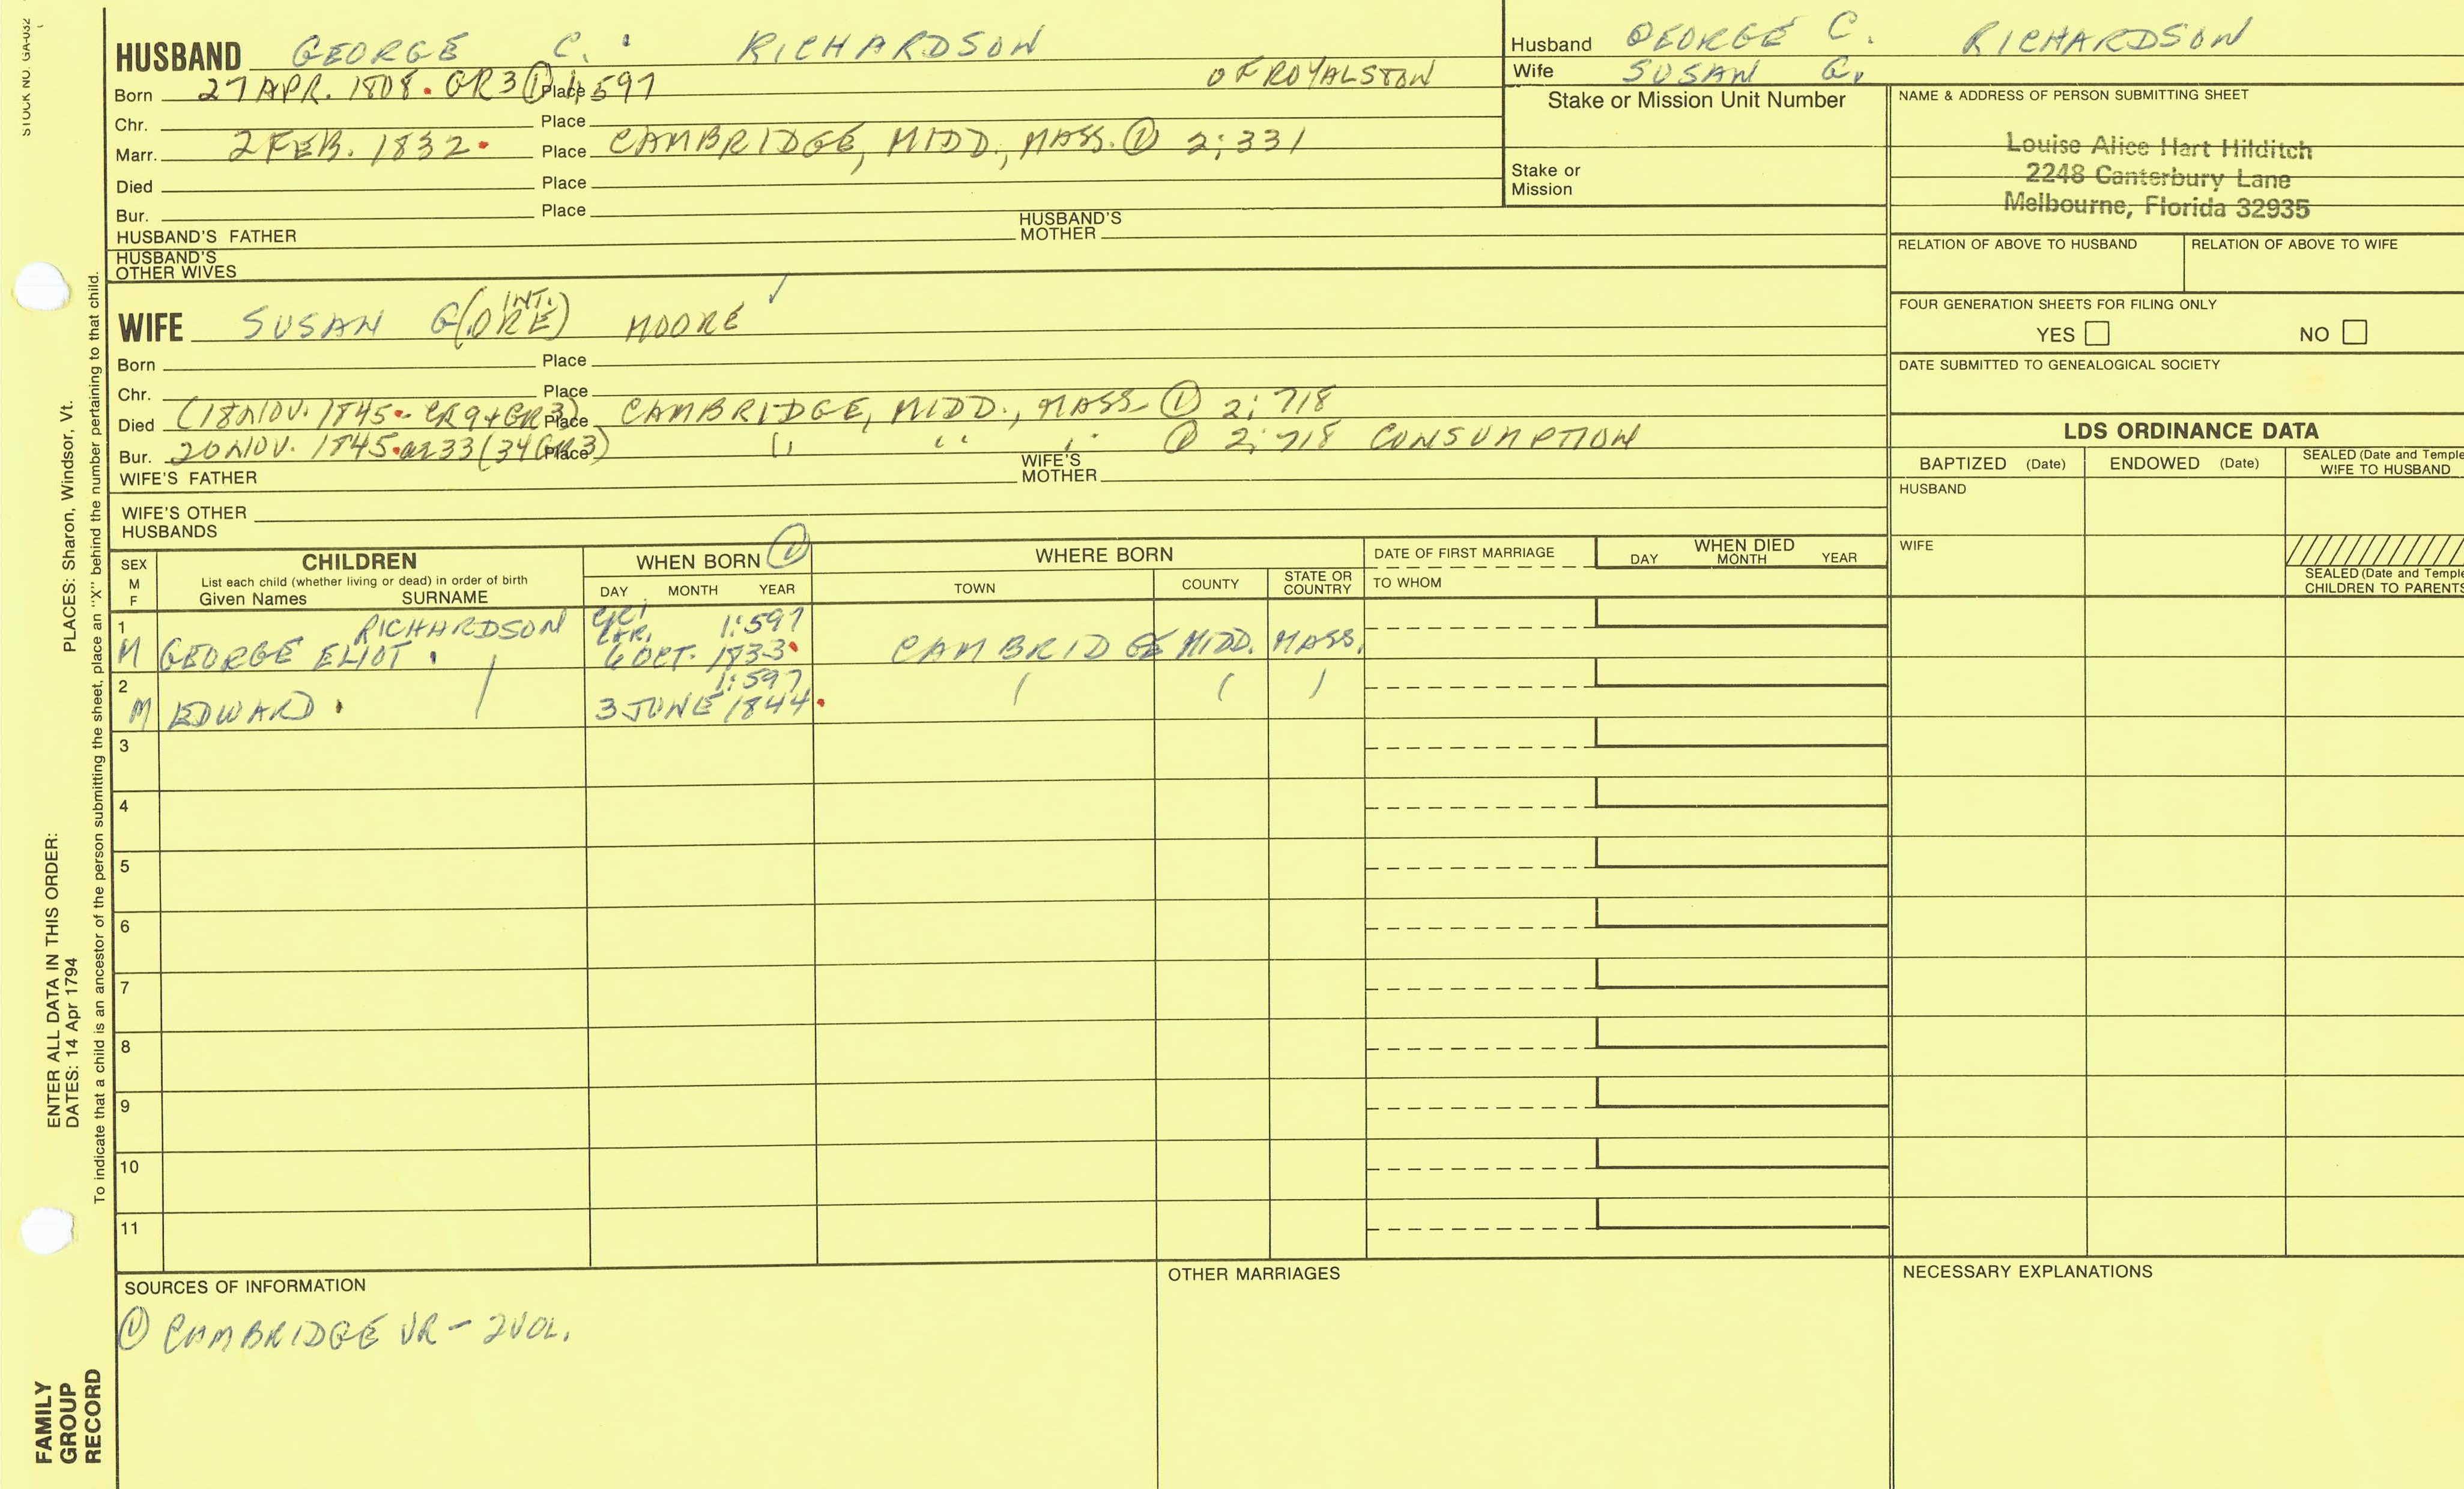 STOCK NO. GA-032
HUSBAND GEORGE C. RICHARDSON
Born 27 APR. 1808. GR3 ① 1;597 Place OF ROYALSTON
Chr. Place
Marr. 2 FEB. 1832. Place CAMBRIDGE, MIDD., MASS. ① 2;331
Died Place
Bur. Place
HUSBAND'S FATHER HUSBAND'S MOTHER
HUSBAND'S OTHER WIVES
Husband GEORGE C. RICHARDSON
Wife SUSAN G.
Stake or Mission Unit Number
Stake or Mission
NAME & ADDRESS OF PERSON SUBMITTING SHEET
Louise Alice Hart Hilditch
2248 Canterbury Lane
Melbourne, Florida 32935
RELATION OF ABOVE TO HUSBAND RELATION OF ABOVE TO WIFE
FOUR GENERATION SHEETS FOR FILING ONLY
YES NO
DATE SUBMITTED TO GENEALOGICAL SOCIETY
WIFE SUSAN G(ORE INT.) MOORE
Born Place
Chr. Place
Died (18 NOV. 1845. CR9+GR3) Place CAMBRIDGE, MIDD., MASS. ① 2;718
Bur. 20 NOV. 1845. 33(34 GR3) Place " " " ① 2;718 CONSUMPTION
WIFE'S FATHER WIFE'S MOTHER
WIFE'S OTHER HUSBANDS
LDS ORDINANCE DATA
BAPTIZED (Date) ENDOWED (Date) SEALED (Date and Temple
WIFE TO HUSBAND
HUSBAND
WIFE
SEALED (Date and Temple
CHILDREN TO PARENTS
SEX M F
CHILDREN
List each child (whether living or dead) in order of birth
Given Names SURNAME
WHEN BORN ①
DAY MONTH YEAR
WHERE BORN
TOWN COUNTY STATE OR COUNTRY
DATE OF FIRST MARRIAGE
TO WHOM
WHEN DIED
DAY MONTH YEAR
1 RICHARDSON 1:597
M GEORGE ELIOT. 6 OCT. 1833. CAMBRIDGE MIDD. MASS.
2 1:597
M EDWARD. 3 JUNE 1844.
3
4
5
6
7
8
9
10
11
SOURCES OF INFORMATION
① CAMBRIDGE VR - 2 VOL.
OTHER MARRIAGES
NECESSARY EXPLANATIONS
PLACES: Sharon, Windsor, Vt.
To indicate that a child is an ancestor of the person submitting the sheet, place an "X" behind the number pertaining to that child.
ENTER ALL DATA IN THIS ORDER:
DATES: 14 Apr 1794
FAMILY
GROUP
RECORD